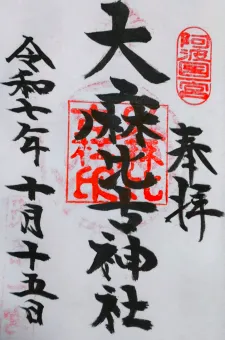 阿波一宮
奉拝
大麻比古神社
令和七年 十月十五日